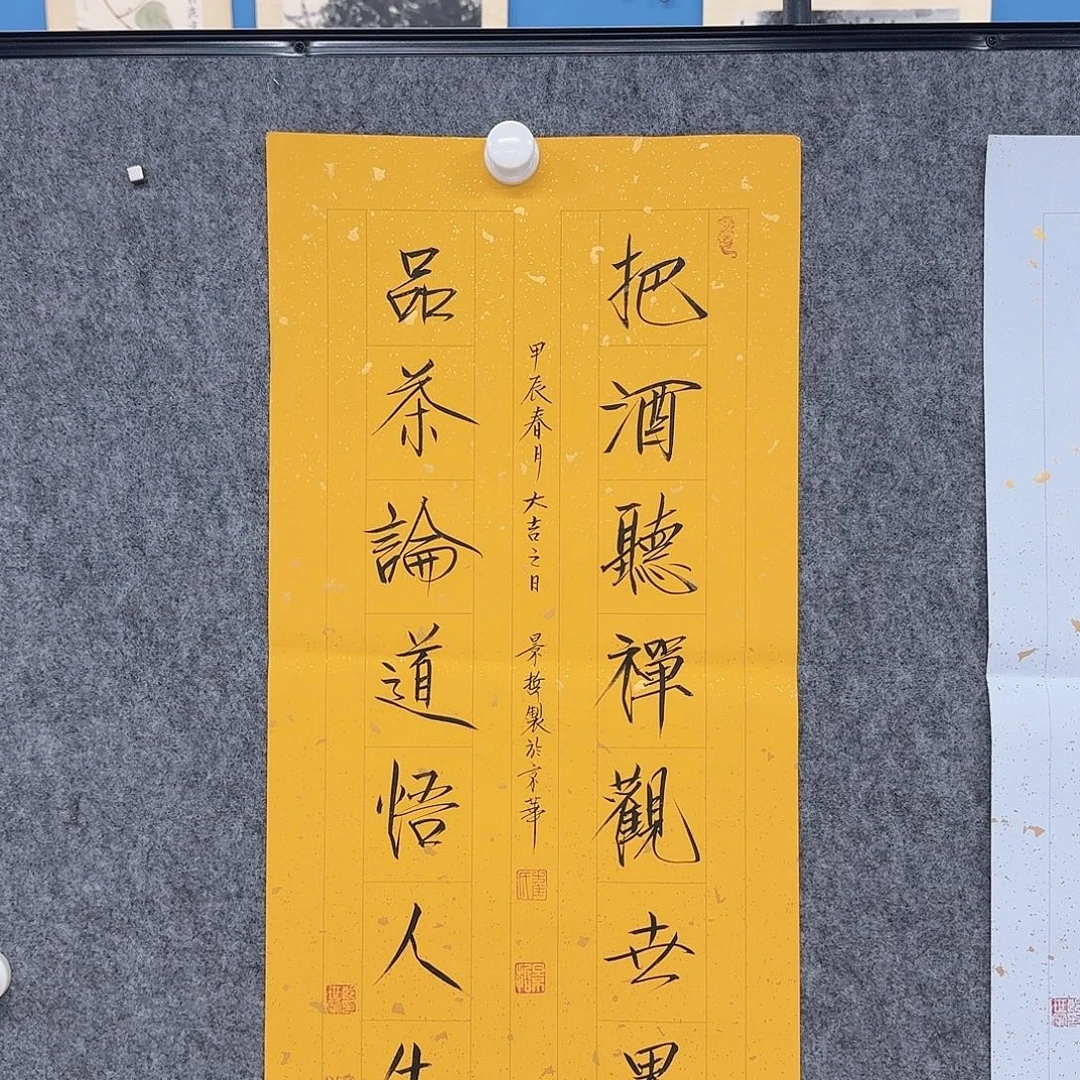 把酒聽禪觀世界
品茶論道悟人生
甲辰春月大吉之日 景哲製於京華